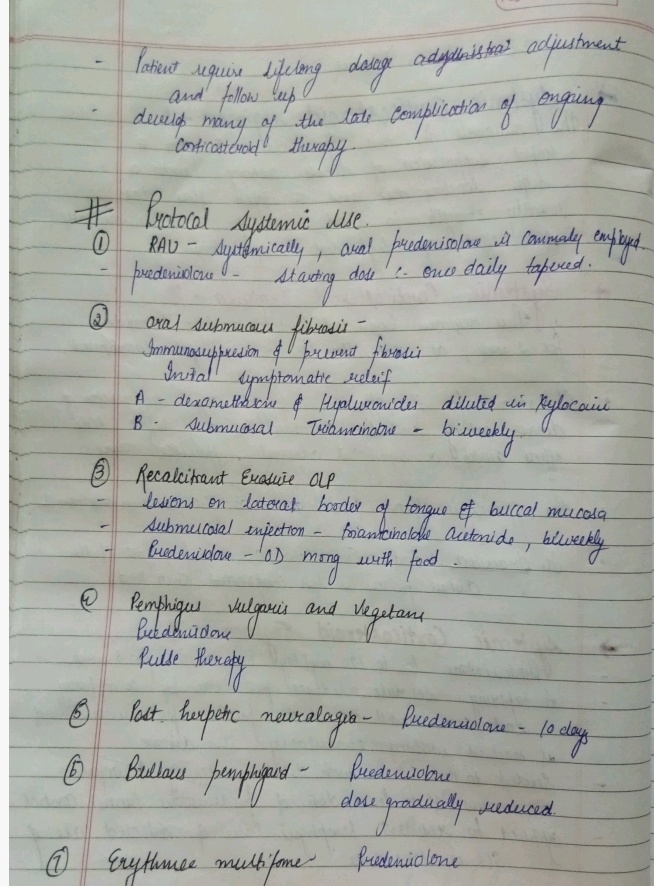 - Patient require lifelong dosage adjustment
and follow up
- develop many of the late complication of ongoing
corticosteroid therapy.
# Protocal systemic use.
① RAU - systemically, oral predenisolove is commaly employed.
- predenisolove - starting dose :- once daily tapered.
② oral submucous fibrosis -
Immunosuppresion & prevent fibrosis
Inital symptomatic releif
A - dexamethasone & Hyaluronides diluted in Xylocaine
B - submucosal Triamcinolone - biweekly
③ Recalcitrant Erasure OLP
- lesions on lateral border of tongue & buccal mucosa
- submucosal injection - triamcinolone acetonide, biweekly
- Predenisolove - OD mong with food.
④ Pemphigus vulgaris and vegetans
Predenisolone
Pulse therapy
⑤ Post herpetic neuralagia - Predenisolove - 10 days
⑥ Bullous pemphigoid - Predenisolone
dose gradually reduced.
⑦ Erythmee multifome - Predenisolone